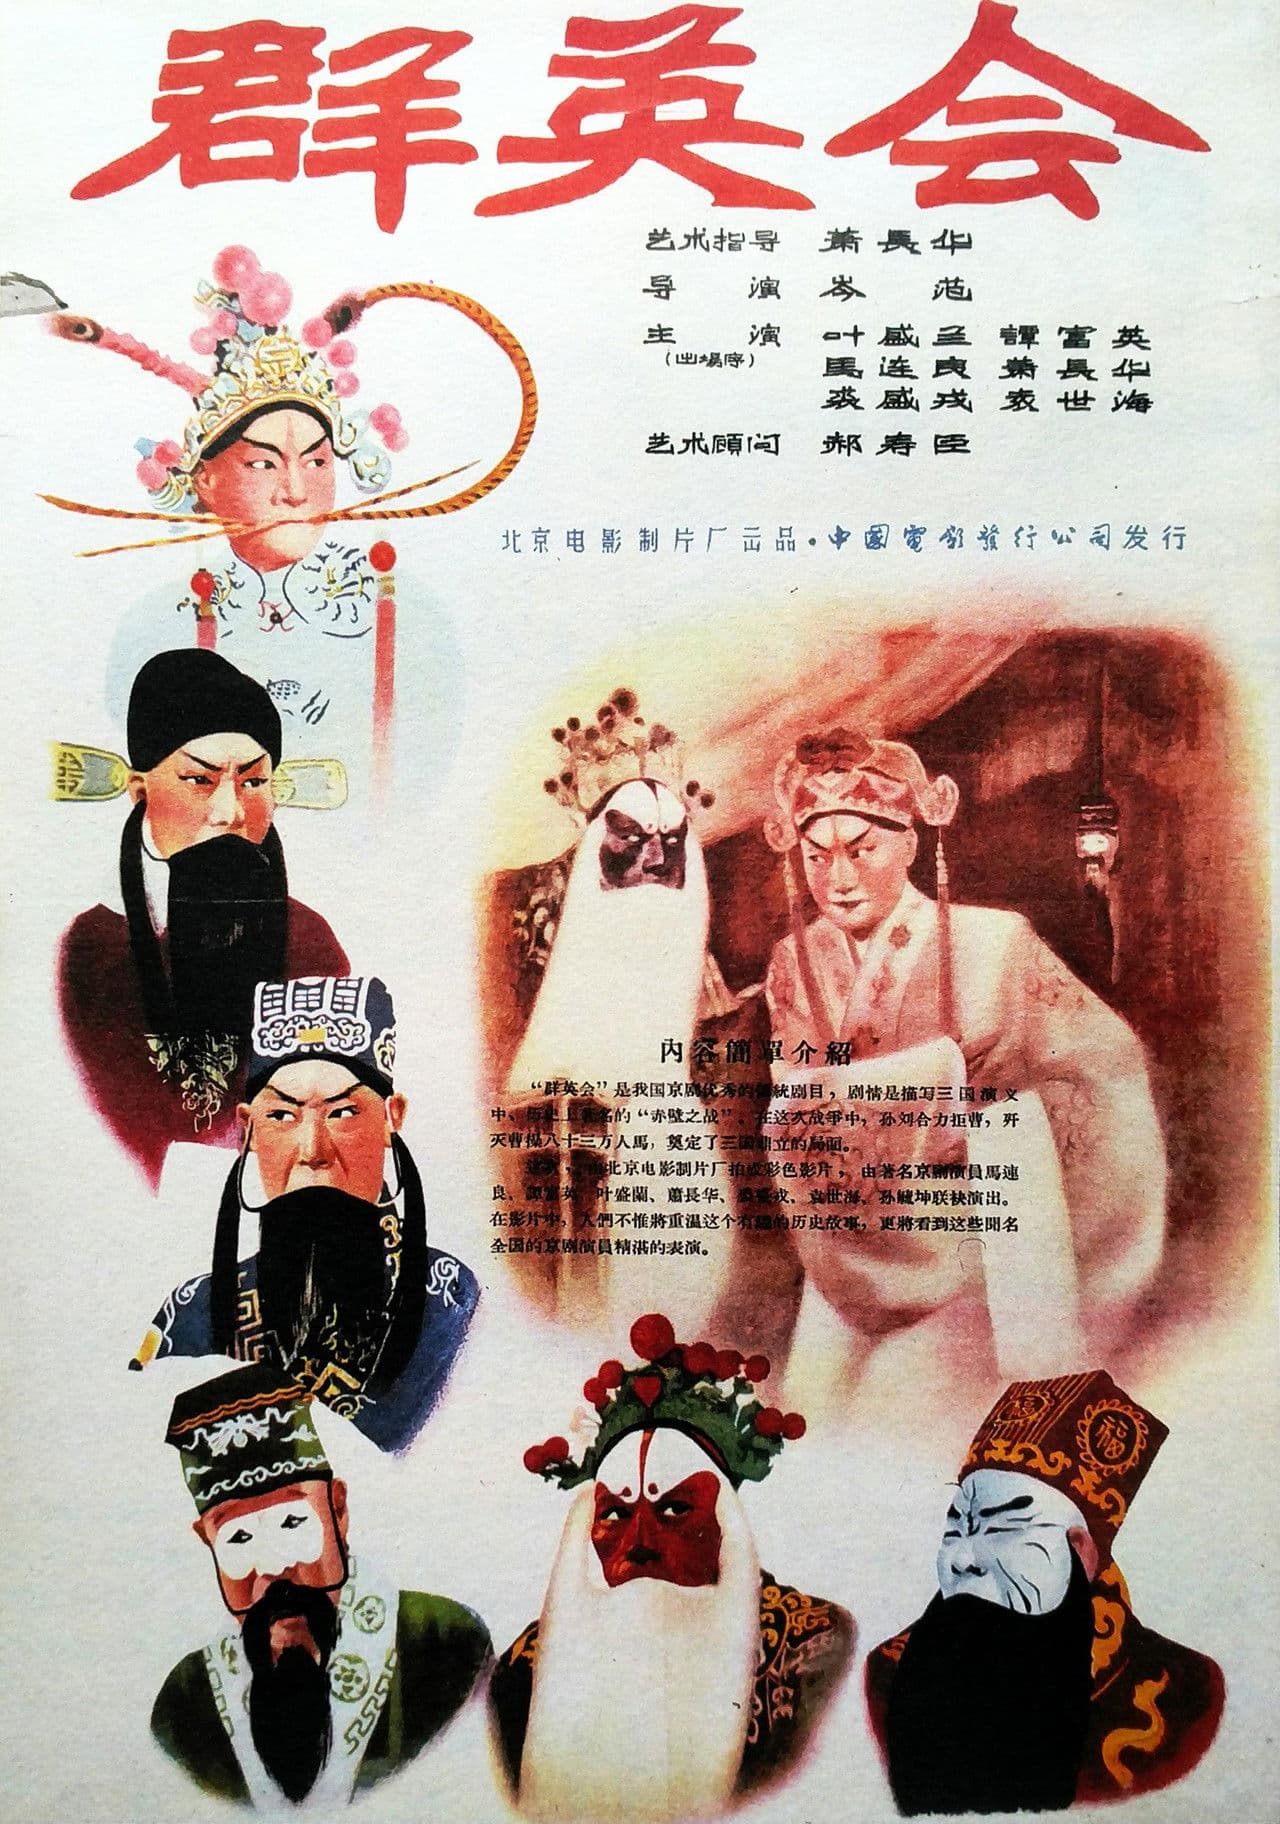 群英会
艺术指导 萧長华
导演 岑范
主演 叶盛兰 譚富英
(出場序) 馬连良 萧長华
裘盛戎 袁世海
艺术顾问 郝寿臣
北京电影制片厂出品·中國電影發行公司发行
内容簡單介紹
“群英会”是我国京剧优秀的傳統剧目，剧情是描写三国演义
中、历史上著名的“赤壁之战”。在这次战争中，孙刘合力拒曹，歼
灭曹操八十三万人馬，奠定了三国鼎立的局面。
，由北京电影制片厂拍成彩色影片，由著名京剧演員馬連
良、譚富英、叶盛蘭、蕭長华、裘盛戎、袁世海、孙毓坤联袂演出。
在影片中，人們不惟將重温这个有趣的历史故事，更將看到这些聞名
全国的京剧演員精湛的表演。
福